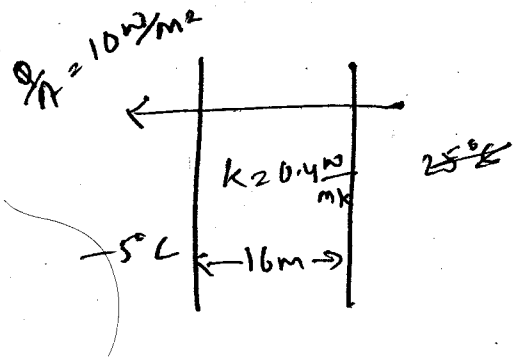 Q/A = 10 W/m²
K = 0.4 W/mk
25°C
-5°C
16m